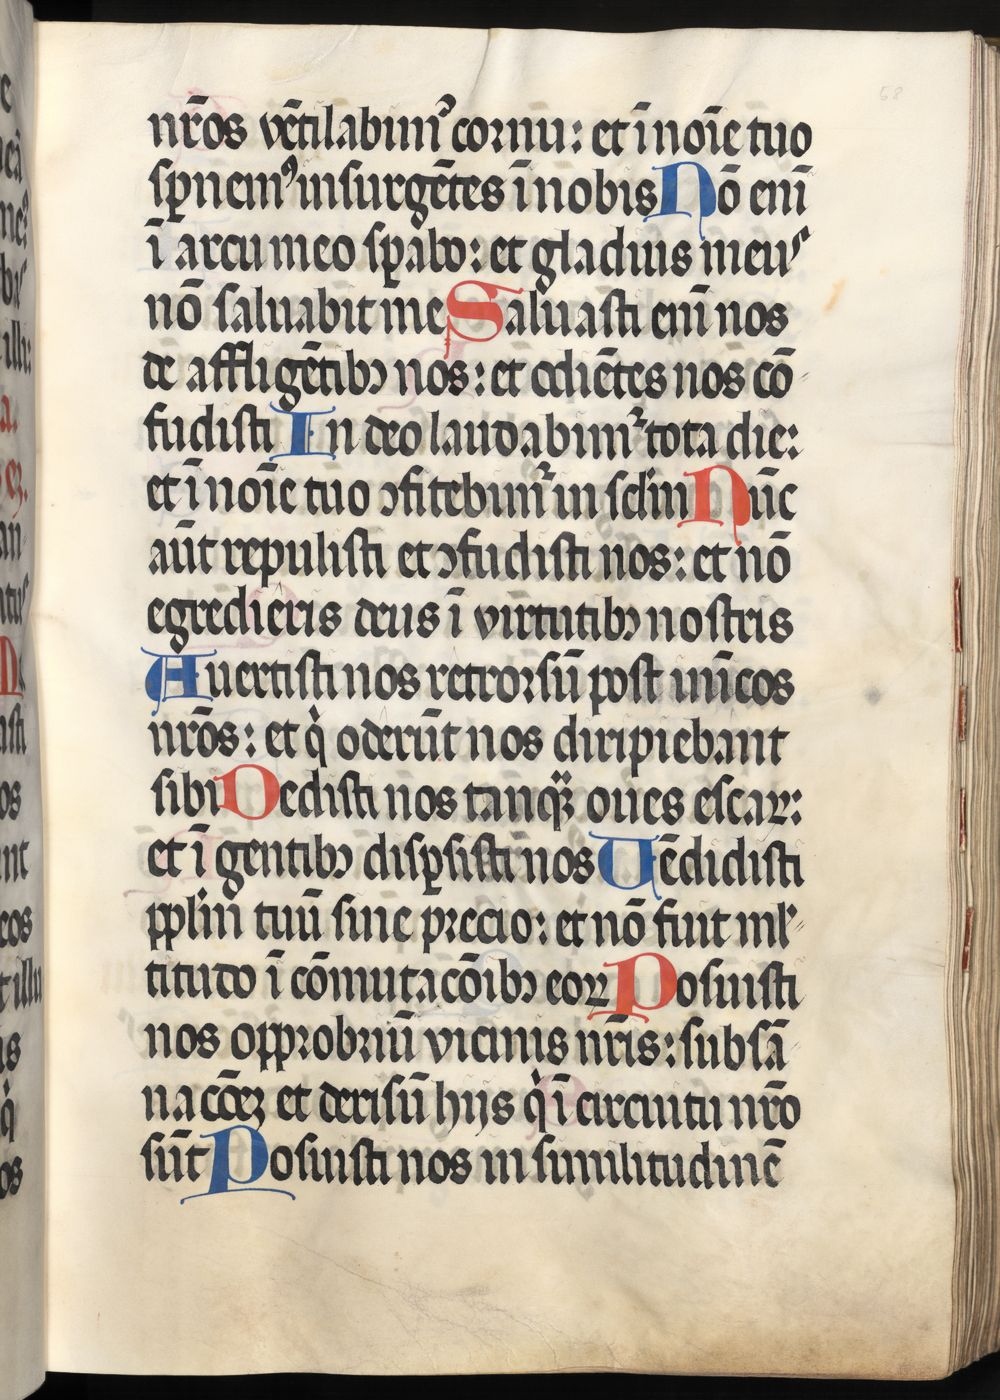 nr̄os vētilabimꝰ cornu: et ī noīe tuo
sꝑnemꝰ insurgētes ī nobis Nō eni̅
ī arcu meo sꝑabo: et gladius meus
nō saluabit me Saluasti eni̅ nos
de affligētibꝫ nos: et odiētes nos cō
fudisti In deo laudabimr̉ tota die:
et ī noīe tuo ꝯfitebimr̉ in sclm̄ Nūc
aūt repulisti et ꝯfudisti nos: et nō
egredieris deus ī virtutibꝫ nostris
Auertisti nos retrorsū post inīcos
nr̄os: et qͥ oderūt nos diripiebant
sibi Dedisti nos tanqᷓꝫ oues escaꝝ:
et ī gentibꝫ disꝑsisti nos Uēdidisti
pplm̄ tuū sine precio: et nō fuit ml̉
titudo ī cōmutacōibꝫ eoꝝ Posuisti
nos opprobriū vicinis nr̄is: subsā
nacōeꝫ et derisū hijs qͥ ī circuitu nr̄o
sūt Posuisti nos in similitudinē
58